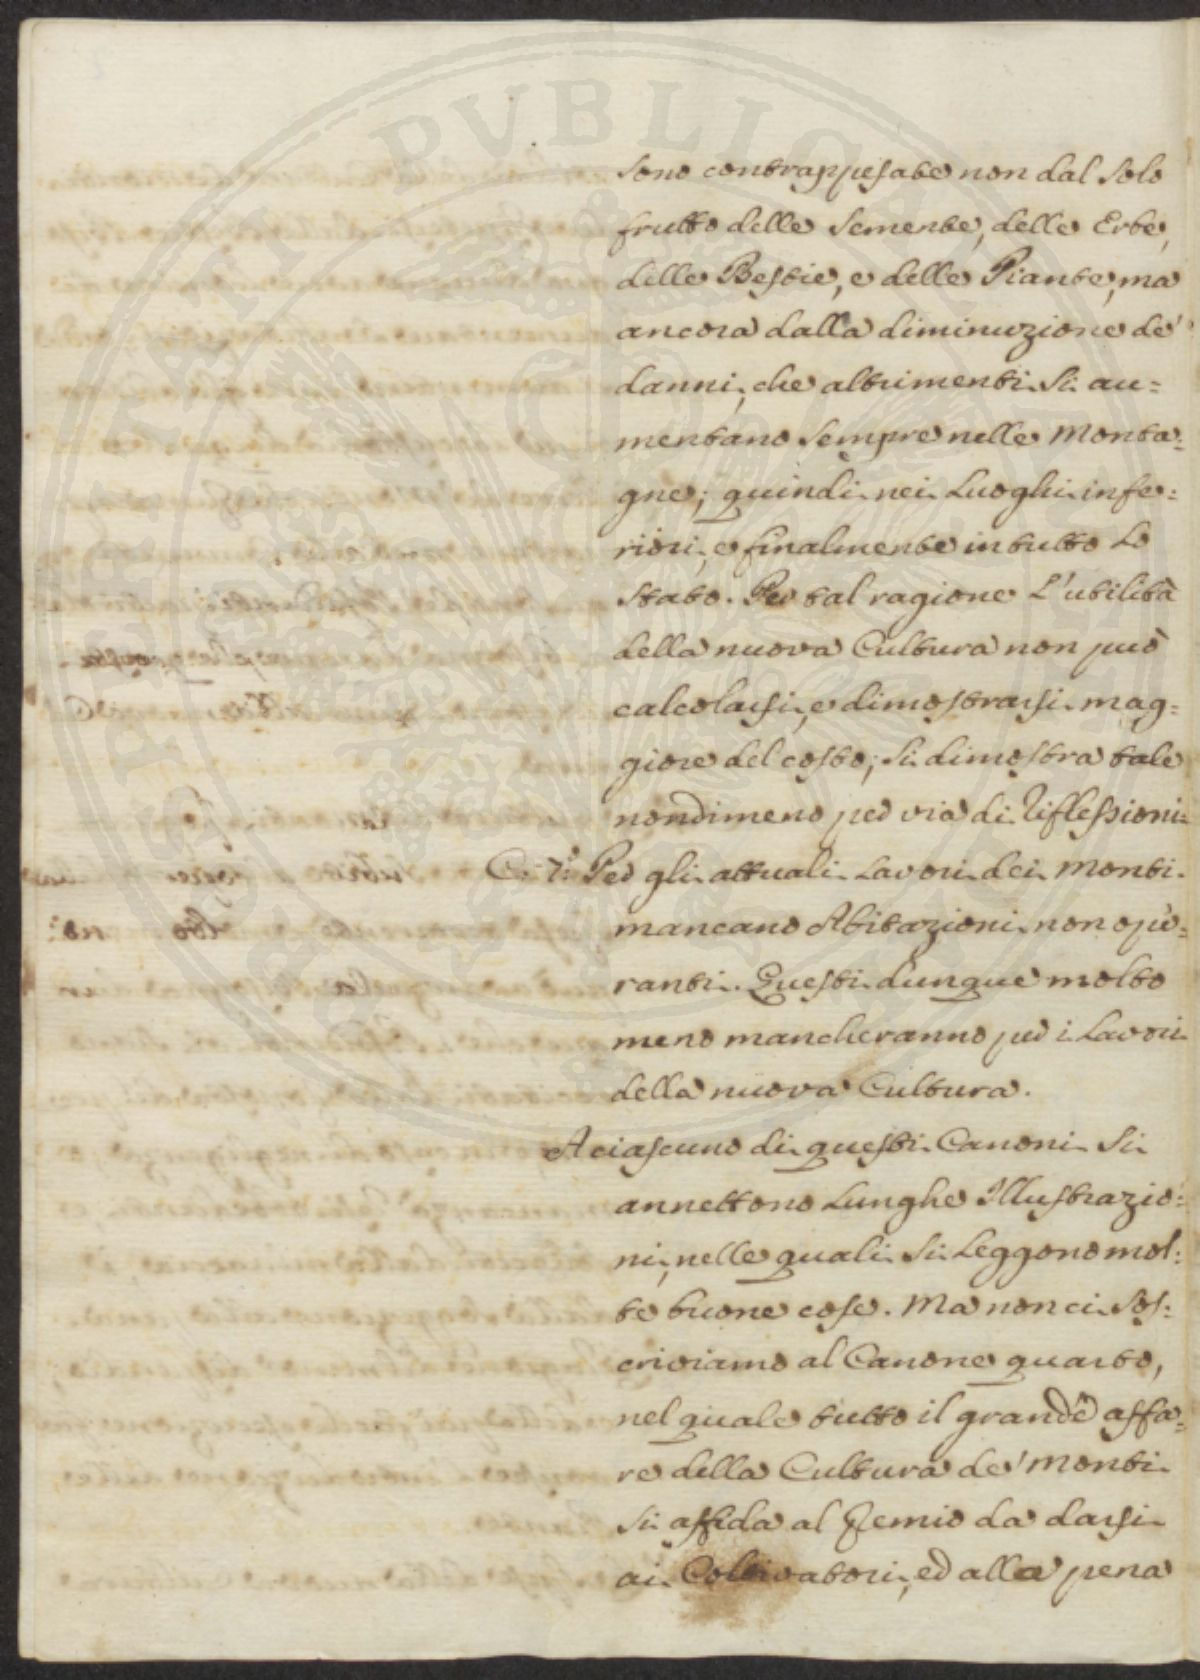 sono contrappesate non dal solo
frutto delle semente, delle Erbe,
delle Bestie, e delle Piante, ma
ancora dalla diminuzione de'
danni, che altrimenti si au=
mentano sempre nelle Monta=
gne; quindi nei Luoghi infe=
riori, e finalmente in tutto Lo
Stato. Per tal ragione L'utilità
della nuova Cultura non può
calcolarsi, e dimostrarsi mag=
giore del costo; si dimostra tale
nondimeno per via di riflessioni
C. 7.° Per gli attuali Lavori dei Monti
mancano Abitazioni non ope=
ranti. Questi dunque molto
meno mancheranno per i Lavori
della nuova Cultura.
A ciascuno di questi Canoni si
annettono Lunghe Illustrazio=
ni, nelle quali si Leggono mol=
te buone cose. Ma non ci sos=
criviamo al Canone quarto,
nel quale tutto il grande affa=
re della Cultura de' Monti
si affida al Premio da darsi
ai Coltivatori, ed alla pena